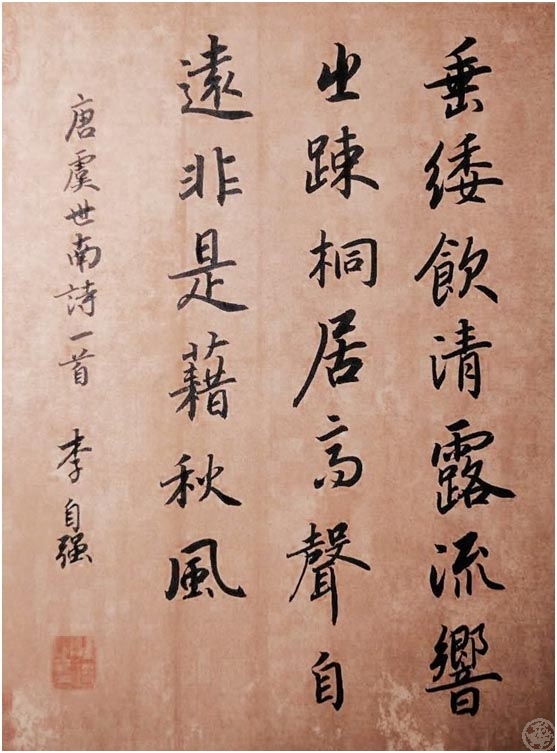 垂緌飲清露流響
出踈桐居高聲自
遠非是藉秋風
唐虞世南詩一首 李自强